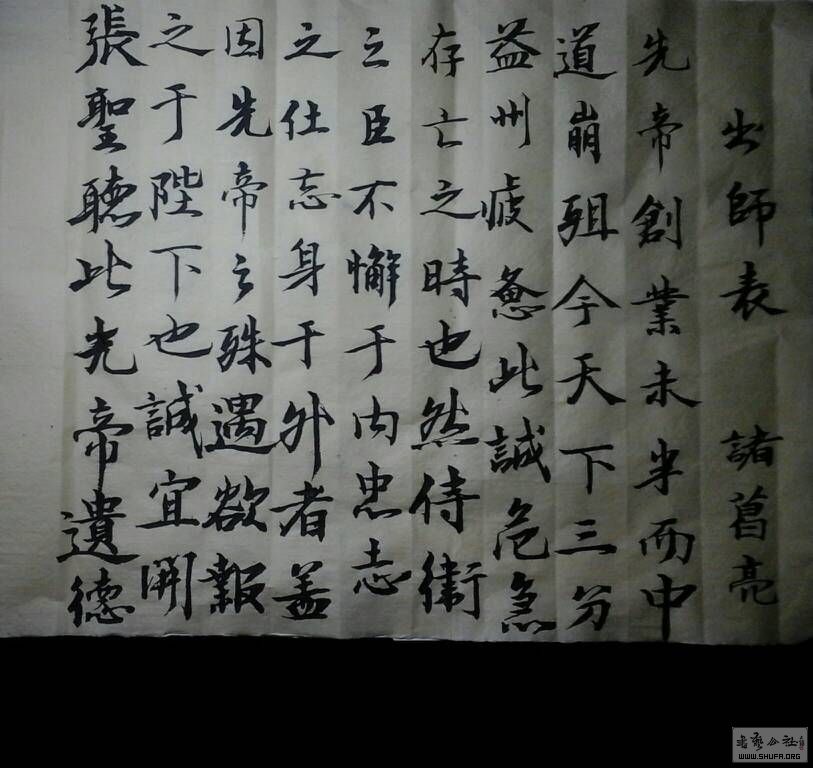 出師表 諸葛亮
先帝創業未半而中
道崩殂今天下三分
益州疲惫此誠危急
存亡之時也然侍衛
之臣不懈于内忠志
之仕忘身于外者盖
因先帝之殊遇欲報
之于陛下也誠宜開
張聖聽此光帝遺德
书艺公社
WWW.SHUFA.ORG